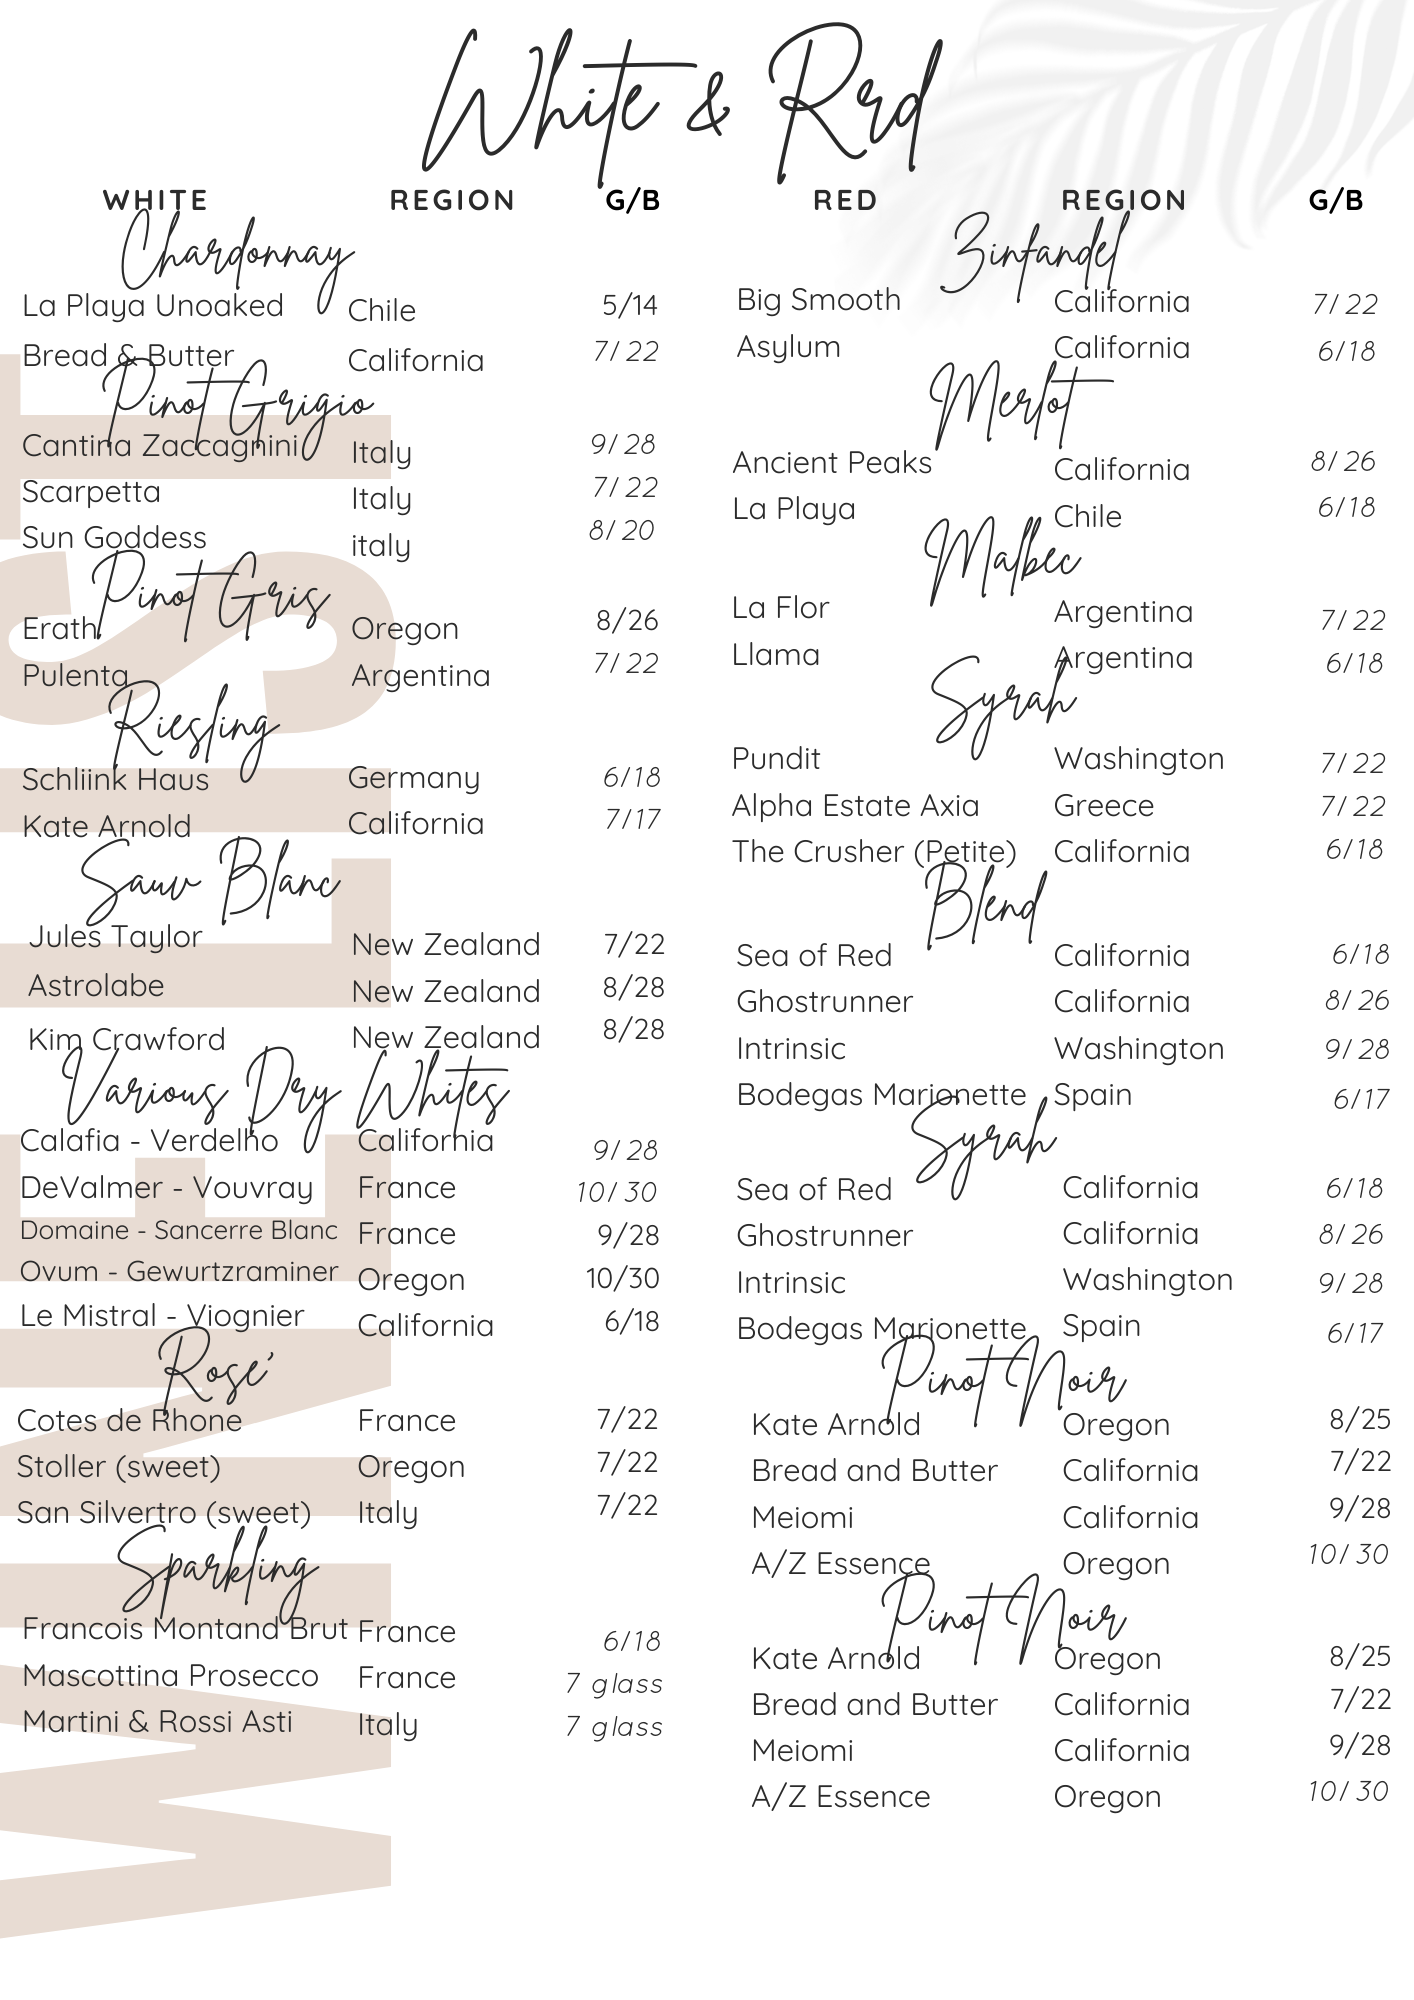 White & Rrd
WHITE REGION G/B
Chardonnay
La Playa Unoaked Chile 5/14
Bread & Butter California 7/ 22
Pinot Grigio
Cantina Zaccagnini Italy 9/ 28
Scarpetta Italy 7/ 22
Sun Goddess italy 8/ 20
Pinot Gris
Erath Oregon 8/26
Pulenta Argentina 7/ 22
Riesling
Schliink Haus Germany 6/18
Kate Arnold California 7/17
Sauv Blanc
Jules Taylor New Zealand 7/22
Astrolabe New Zealand 8/28
Kim Crawford New Zealand 8/28
Various Dry Whites
Calafia - Verdelho California 9/ 28
DeValmer - Vouvray France 10/ 30
Domaine - Sancerre Blanc France 9/28
Ovum - Gewurtzraminer Oregon 10/30
Le Mistral - Viognier California 6/18
Rose'
Cotes de Rhone France 7/22
Stoller (sweet) Oregon 7/22
San Silvertro (sweet) Italy 7/22
Sparkling
Francois Montand Brut France 6/18
Mascottina Prosecco France 7 glass
Martini & Rossi Asti Italy 7 glass
RED REGION G/B
Zinfandel
Big Smooth California 7/ 22
Asylum California 6/18
Merlot
Ancient Peaks California 8/ 26
La Playa Chile 6/18
Malbec
La Flor Argentina 7/ 22
Llama Argentina 6/18
Syrah
Pundit Washington 7/ 22
Alpha Estate Axia Greece 7/ 22
The Crusher (Petite) California 6/18
Blend
Sea of Red California 6/18
Ghostrunner California 8/ 26
Intrinsic Washington 9/ 28
Bodegas Marionette Spain 6/17
Syrah
Sea of Red California 6/18
Ghostrunner California 8/ 26
Intrinsic Washington 9/ 28
Bodegas Marionette Spain 6/17
Pinot Noir
Kate Arnold Oregon 8/25
Bread and Butter California 7/22
Meiomi California 9/28
A/Z Essence Oregon 10/ 30
Pinot Noir
Kate Arnold Oregon 8/25
Bread and Butter California 7/22
Meiomi California 9/28
A/Z Essence Oregon 10/ 30
WINE LIST